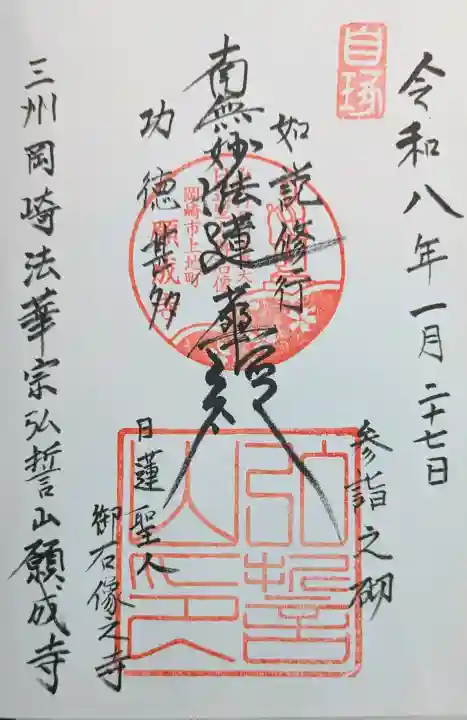 令和八年一月二十七日
参詣之砌
如説修行
南無妙法蓮華経
功徳甚多
日蓮聖人
御石像之寺
三州岡崎法華宗弘誓山願成寺
岡崎市上地町
願成寺
弘誓山印